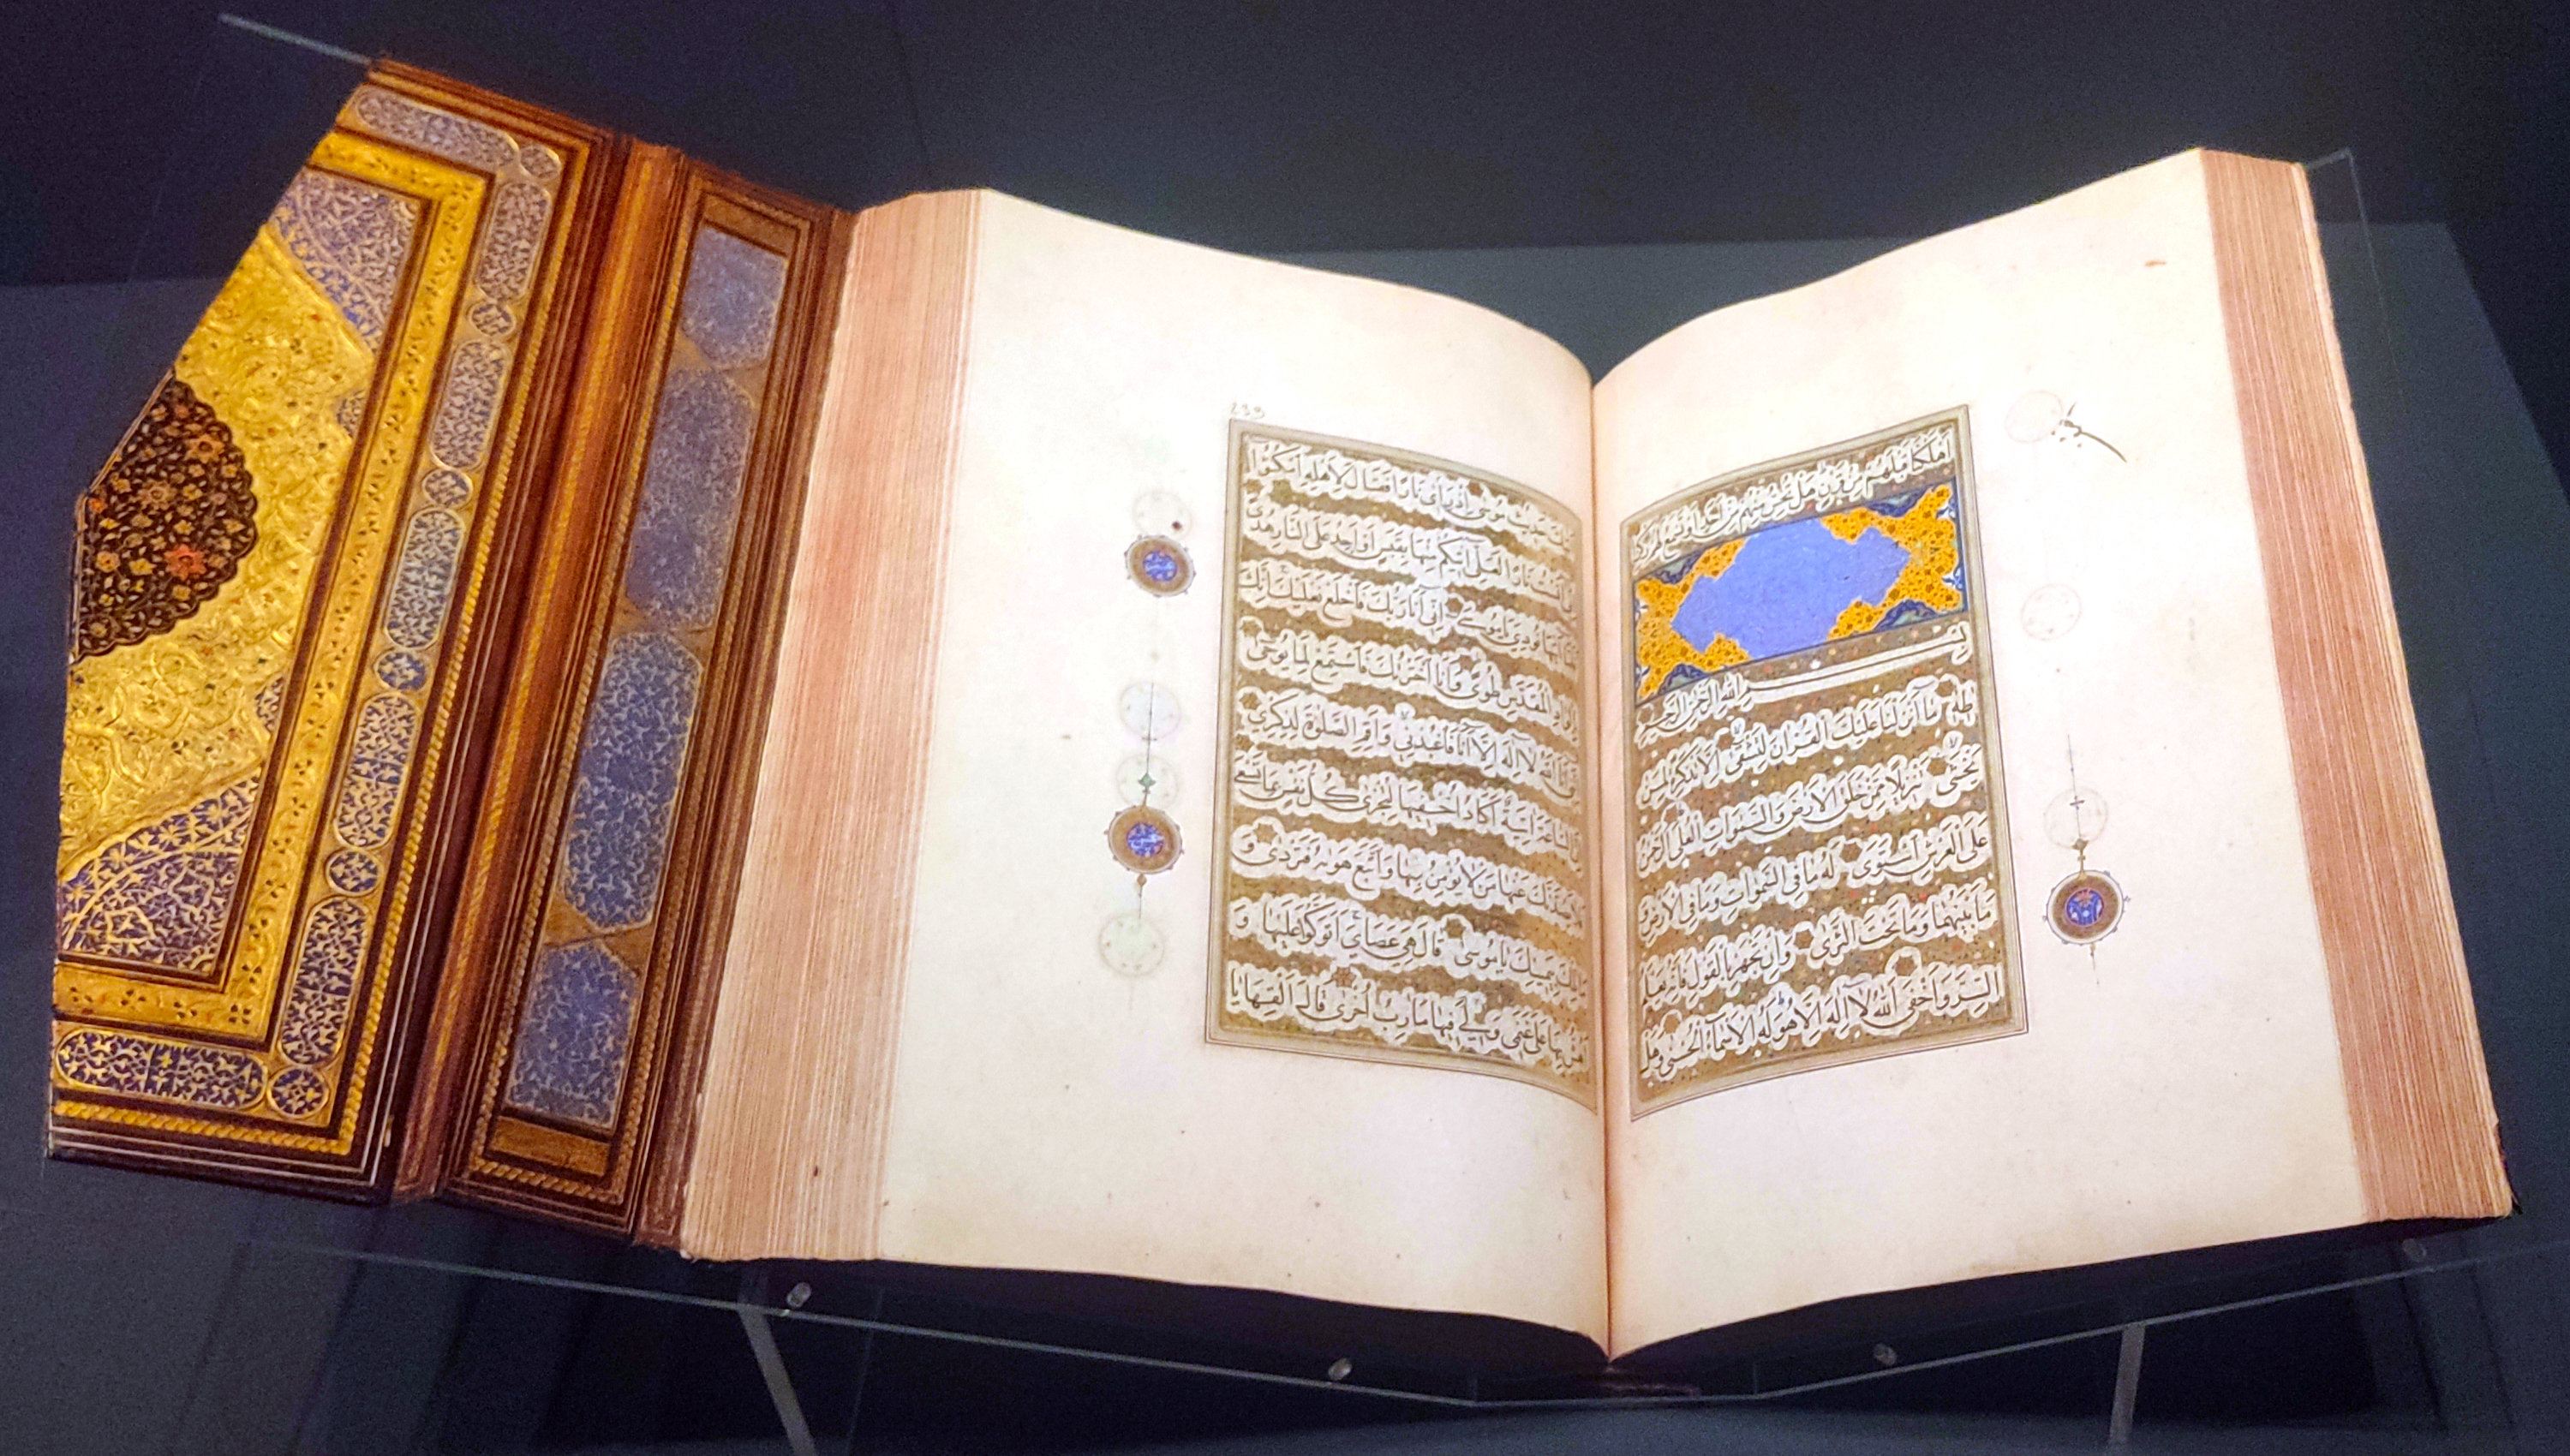 أهلكنا قبلهم من قرن هل تحس منهم من أحد أو تسمع لهم ركزا
بسم الله الرحمن الرحيم
طه ما أنزلنا عليك القرآن لتشقى إلا تذكرة لمن
يخشى تنزيلا ممن خلق الأرض والسموات العلى الرحمن
على العرش استوى له ما في السموات وما في الأرض و
ما بينهما وما تحت الثرى وإن تجهر بالقول فإنه يعلم
السر وأخفى الله لا إله إلا هو له الأسماء الحسنى وهل
أتاك حديث موسى إذ رأى نارا فقال لأهله امكثوا
إني آنست نارا لعلي آتيكم منها بقبس أو أجد على النار هدى
فلما أتاها نودي يا موسى إني أنا ربك فاخلع نعليك إنك
بالواد المقدس طوى وأنا اخترتك فاستمع لما يوحى
إنني أنا الله لا إله إلا أنا فاعبدني وأقم الصلوة لذكري
إن الساعة آتية أكاد أخفيها لتجزى كل نفس بما تسعى
فلا يصدنك عنها من لا يؤمن بها واتبع هويه فتردى و
ما تلك بيمينك يا موسى قال هي عصاي أتوكؤا عليها و
أهش بها على غنمي ولي فيها مآرب أخرى قال ألقها يا